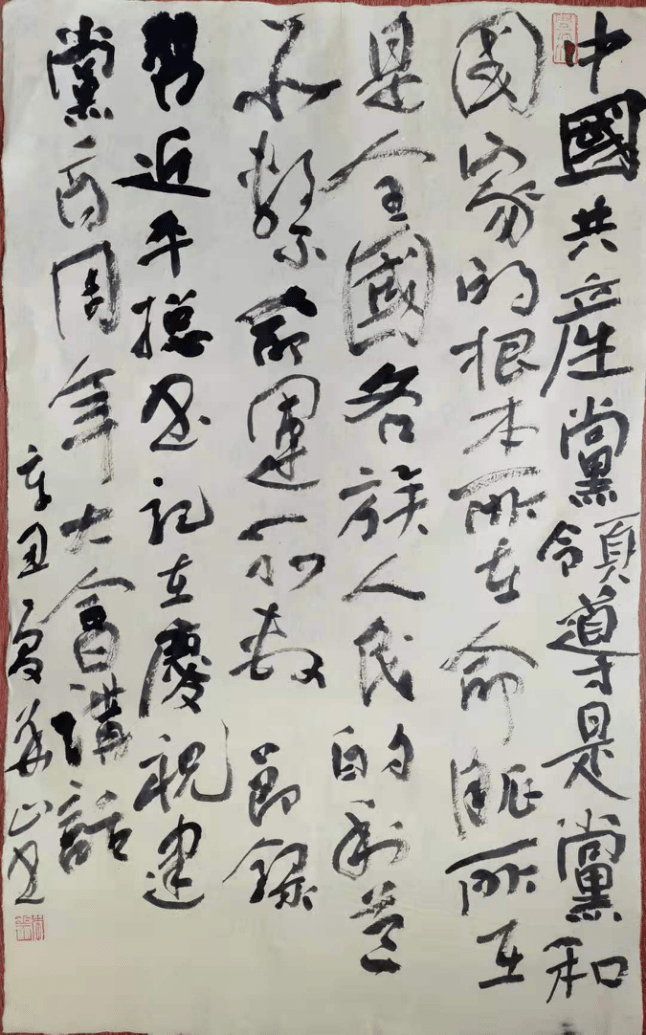 中國共產黨領導是黨和
國家的根本所在命脈所在
是全國各族人民的利益
所繫命運所繫 節錄
習近平總書記在慶祝建
黨百周年大會講話
辛丑夏華山書